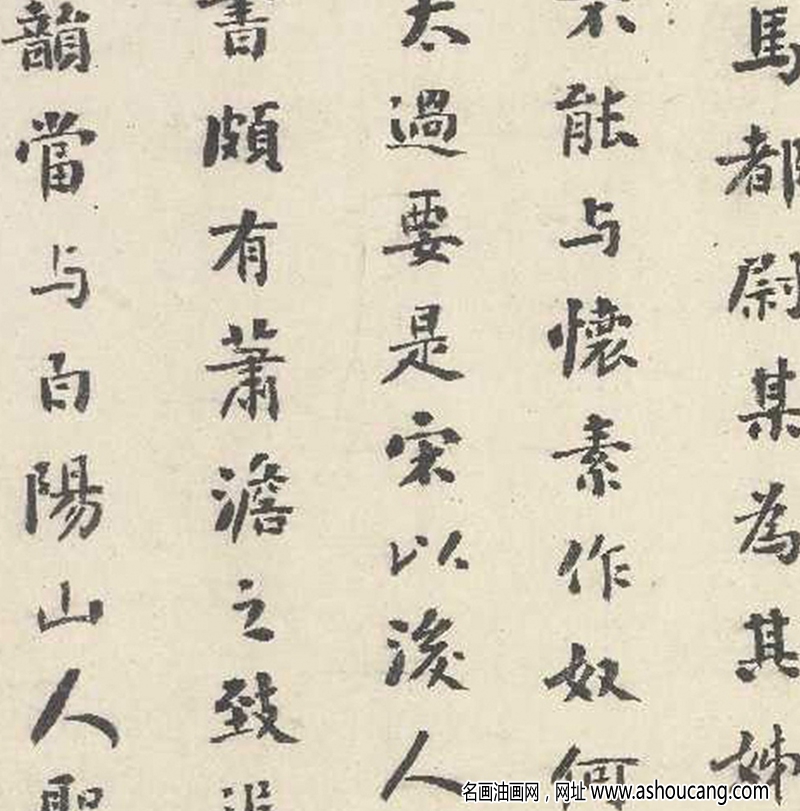 馬都尉某為其姊
不能与懷素作奴何
太過要是宋以後人
書頗有蕭澹之致
韻當与白陽山人
名画油画网，网址 www.ashoucang.com